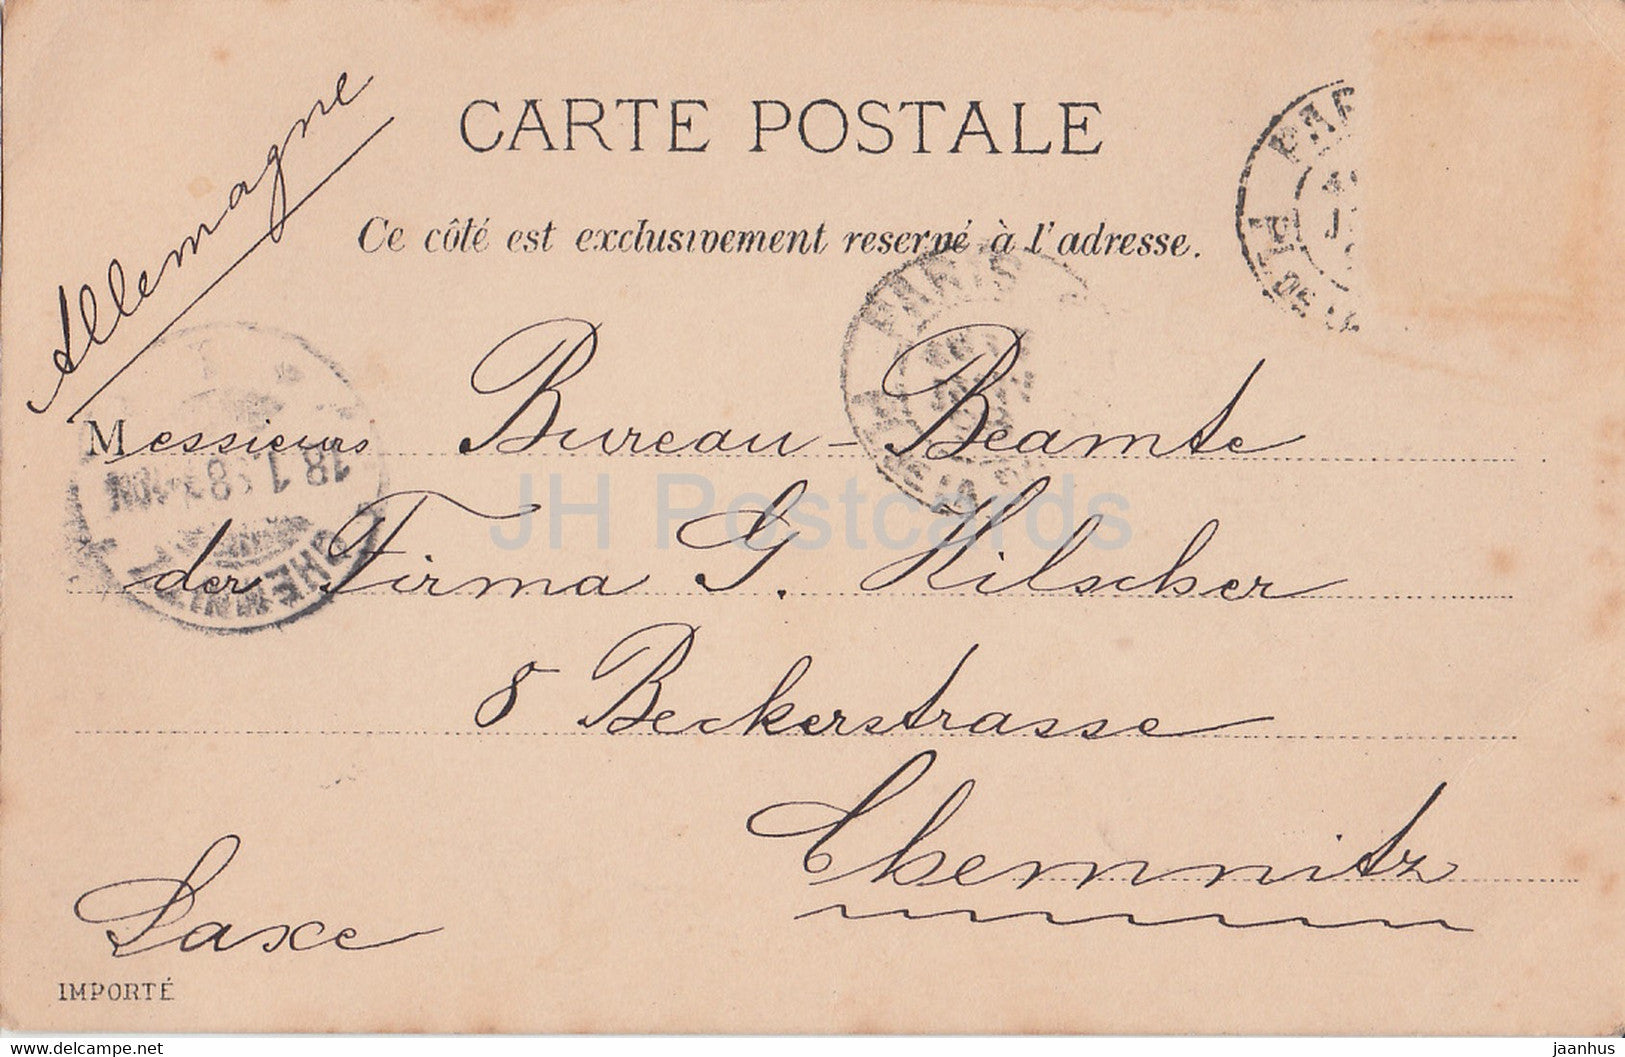 CARTE POSTALE
Ce côté est exclusivement reservé à l'adresse.
Allemagne
Messieurs Bureau-Beamte
der Firma G. Hilscher
8 Beckerstrasse
Chemnitz
Saxe
IMPORTÉ
PARIS
CHEMNITZ
18.1.
JH Postcards
www.delcampe.net
jaanhus